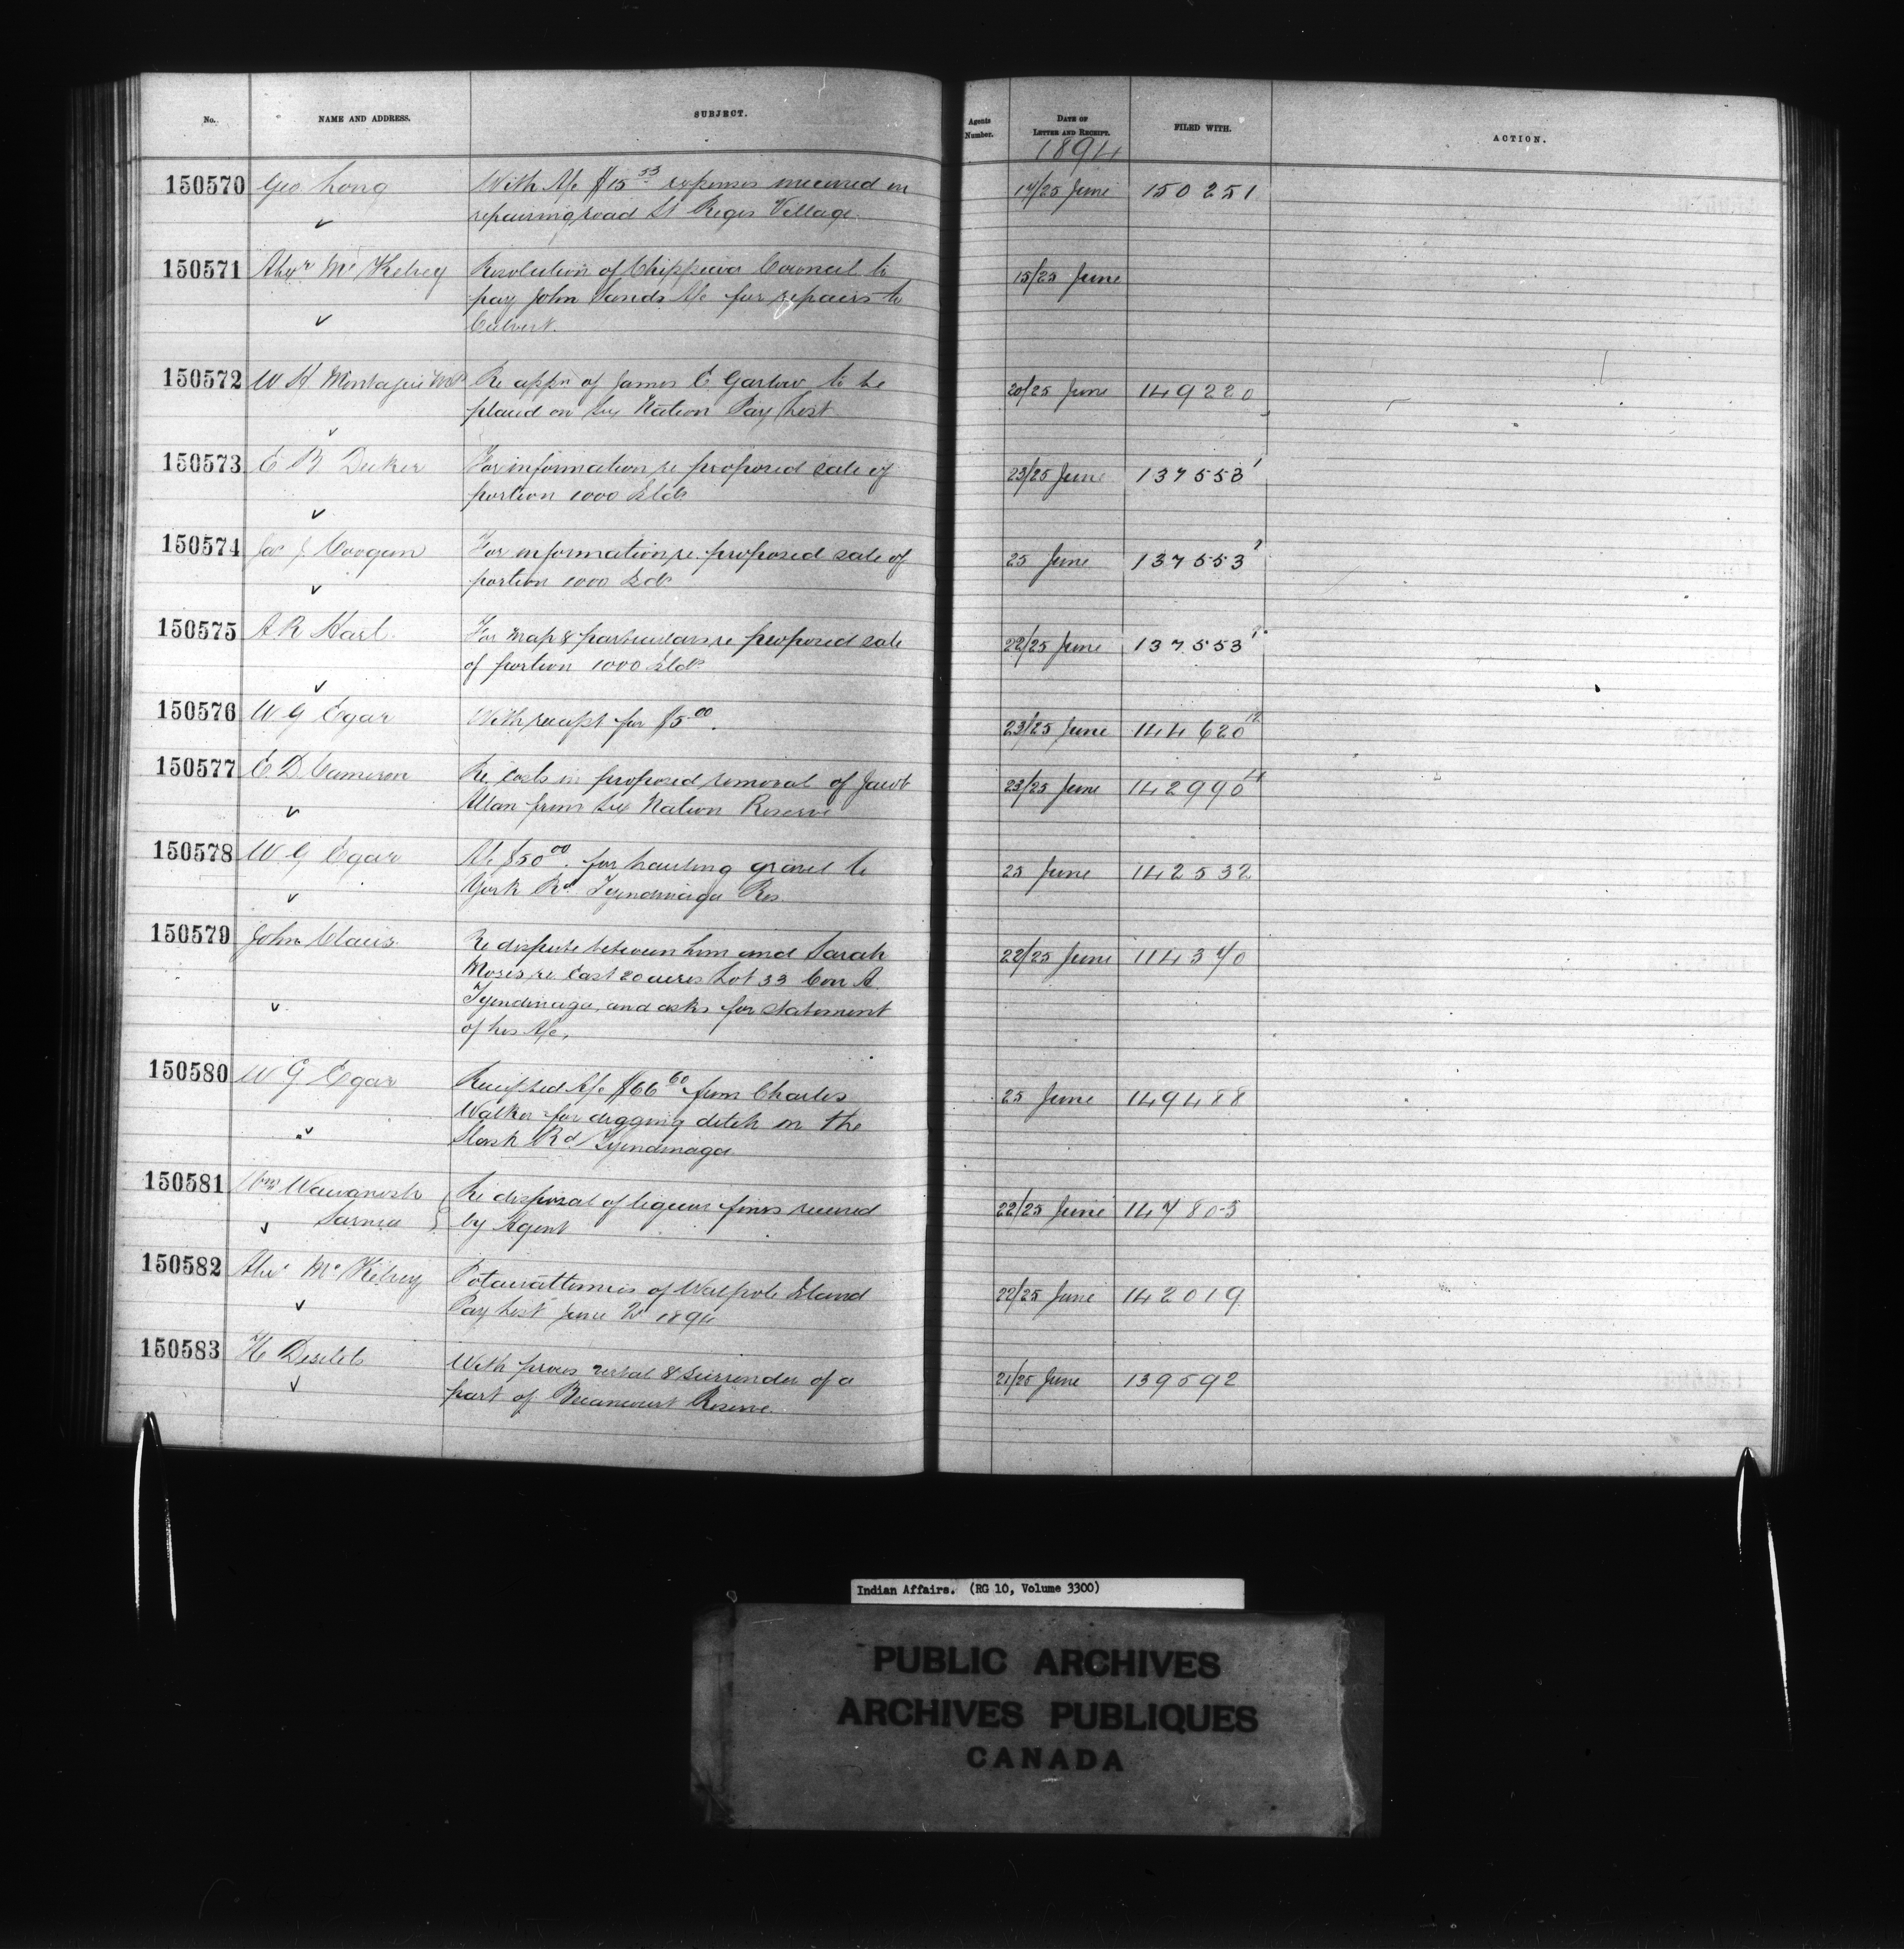 No. NAME AND ADDRESS. SUBJECT. Agents Number. DATE OF LETTER AND RECEIPT. FILED WITH. ACTION.
1894
150570 Geo Long With A/c $15 53 expenses incurred in 14/25 June 150251
repairing road St Regis Village
150571 Alexr McKelvey Resolution of Chippewa Council to 15/25 June
pay John Sands A/c for repairs to
Culvert.
150572 W H Montague MP Re appn of James E Garlow to be 20/25 June 149220
placed on Six Nation Pay List
150573 E B Decker For information re proposed sale of 23/25 June 137553
portion 1000 Islds
150574 Jas J Coogan For information re proposed sale of 25 June 137553
portion 1000 Islds
150575 A R Hart For map & particulars re proposed sale 22/25 June 137553
of portion 1000 Islds
150576 W G Egar With receipt for $5 00. 23/25 June 144620 12
150577 E. D. Cameron Re costs in proposed removal of Jacob 23/25 June 142990
Allan from Six Nation Reserve
150578 W G Egar A/c $50 00. for hauling gravel to 25 June 142532
York Rd. Tyendinaga Res.
150579 John Claus Re dispute between him and Sarah 22/25 June 114370
Moses re East 20 acres Lot 33 Con A
Tyendinaga, and asks for statement
of his A/c,
150580 W G Egar Receipted A/c $66 60 from Charles 25 June 149488
Walker for digging ditch on the
Slash Rd Tyendinaga
150581 Wm Wawanosh Re disposal of liquor fines received 22/25 June 147805
Sarnia by Agent
150582 Alexr McKelvey Potawattomies of Walpole Island 22/25 June 142019
Pay List June 1894
150583 H Desilets With proces verbal & surrender of a 21/25 June 139592
part of Becancourt Reserve.
Indian Affairs. (RG 10, Volume 3300)
PUBLIC ARCHIVES
ARCHIVES PUBLIQUES
CANADA